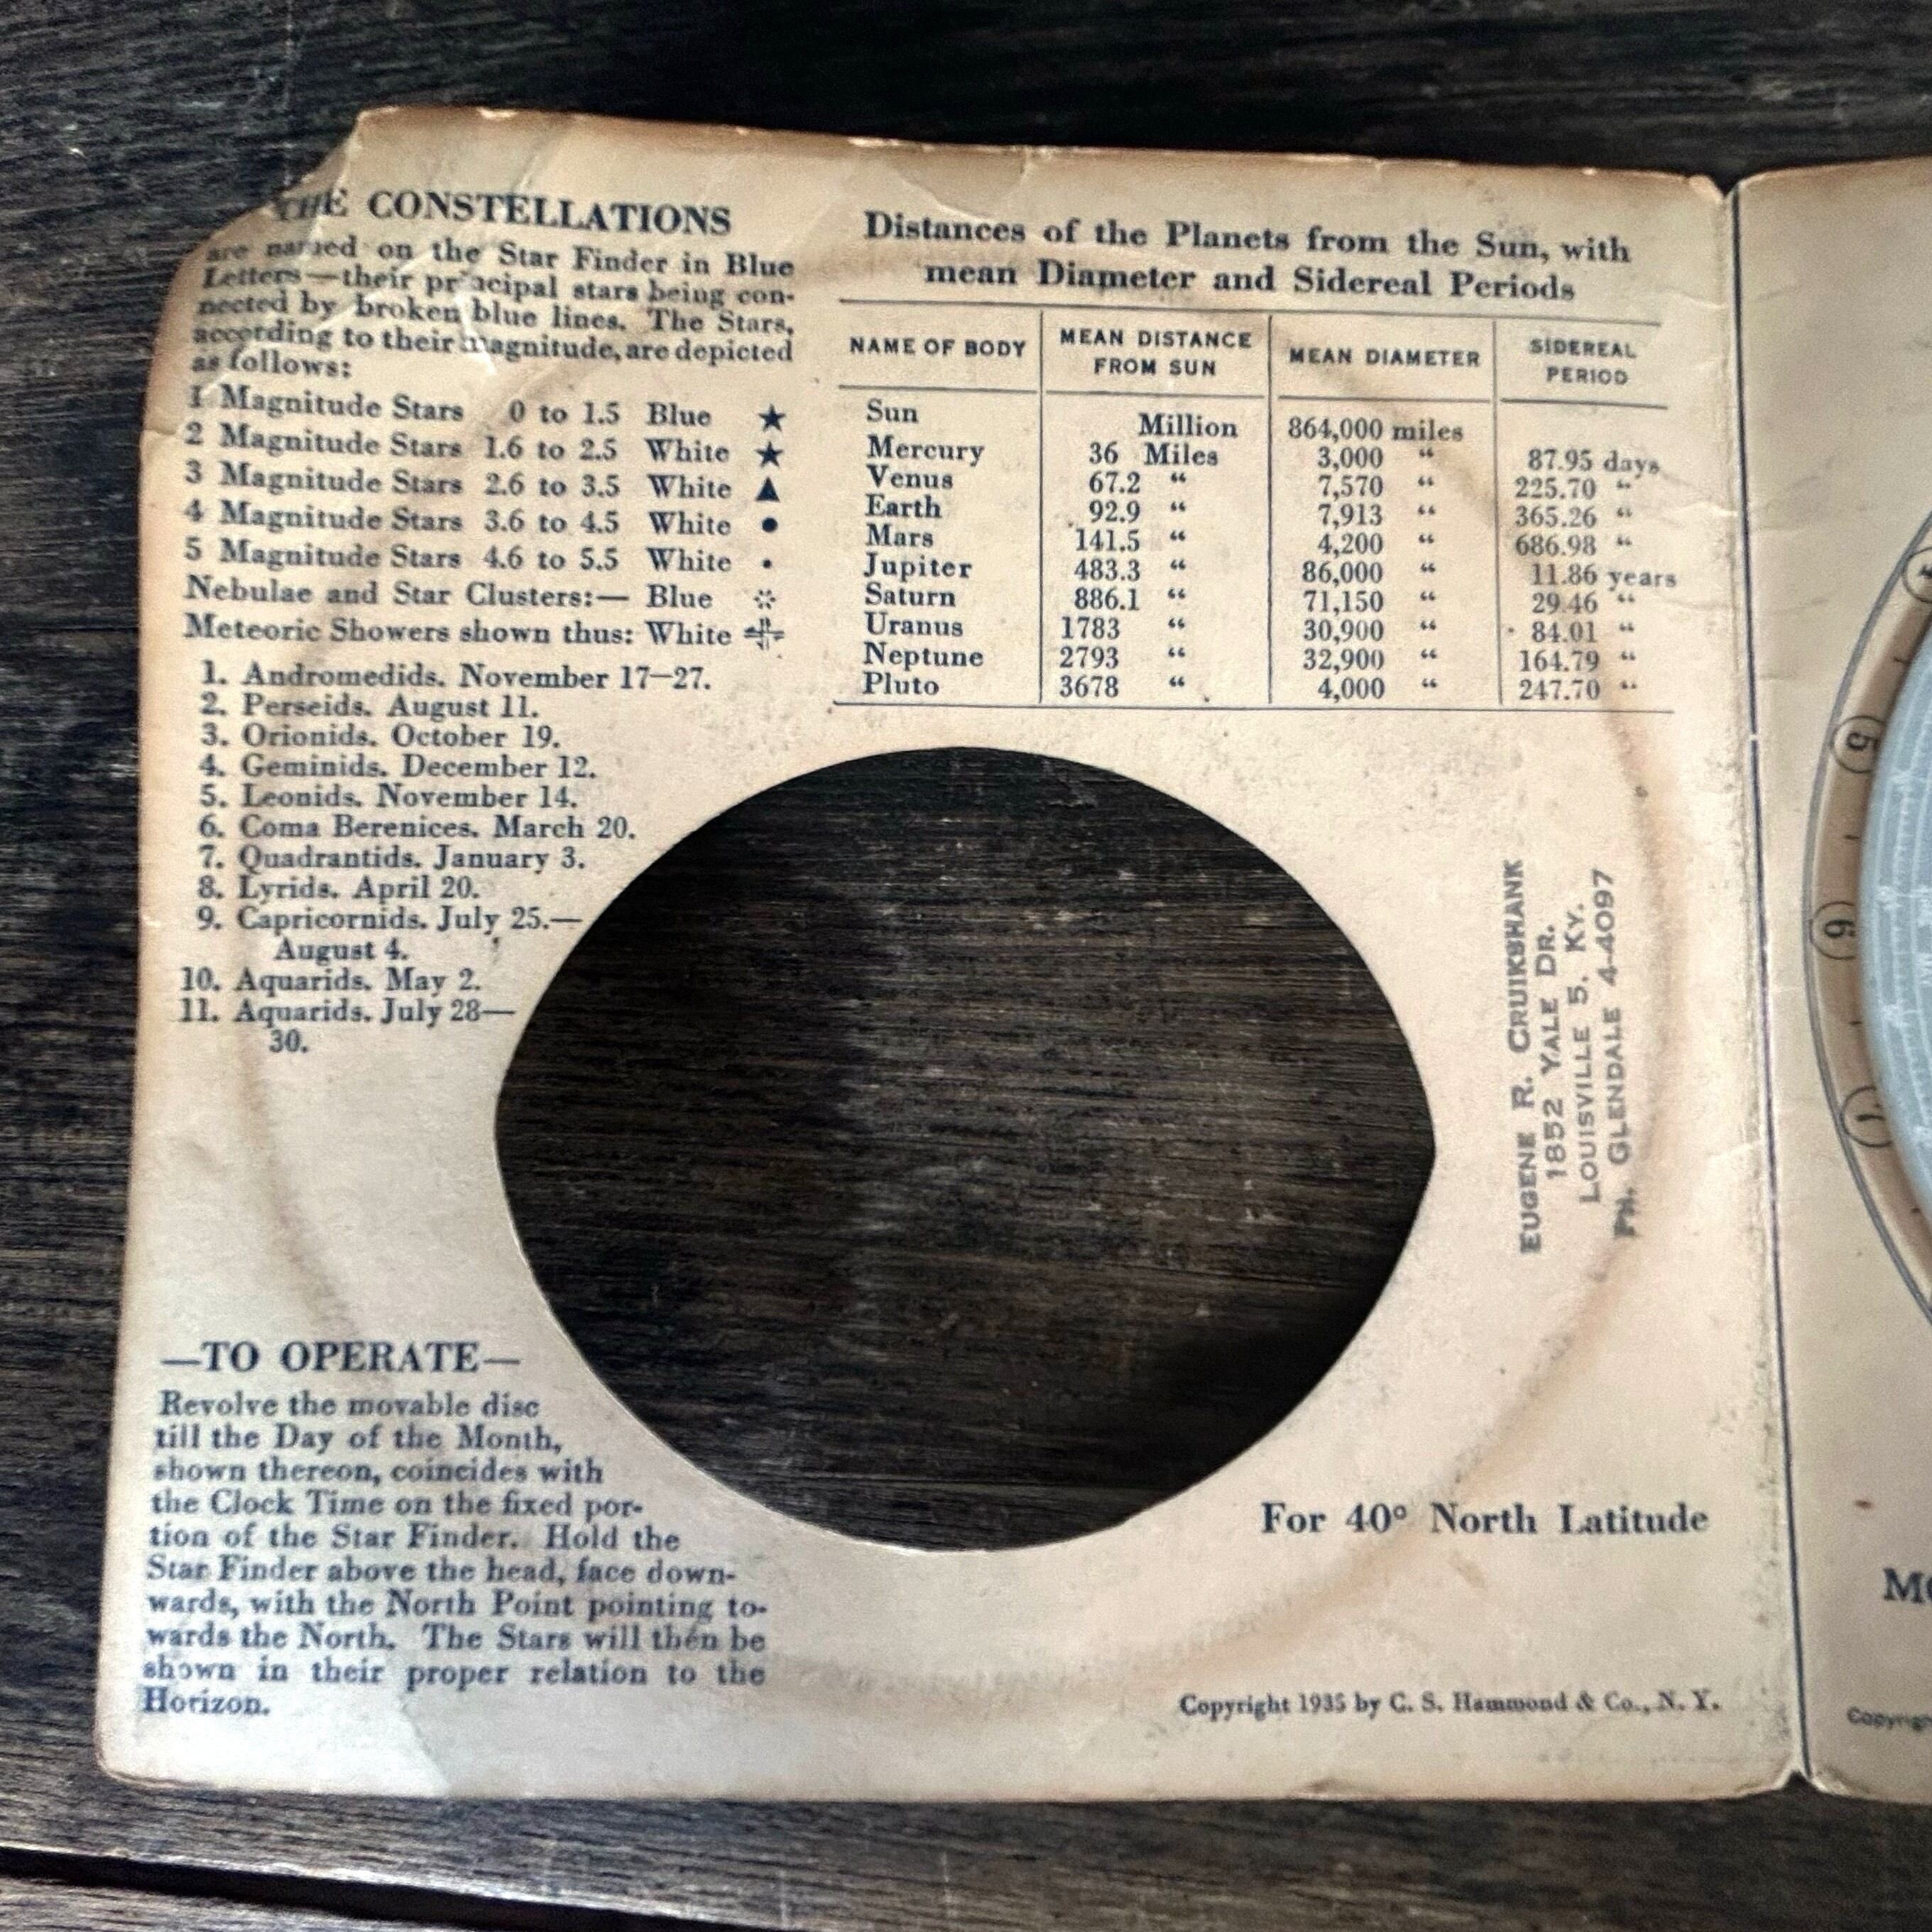 THE CONSTELLATIONS
are named on the Star Finder in Blue
Letters—their principal stars being con-
nected by broken blue lines. The Stars,
according to their magnitude, are depicted
as follows:
1 Magnitude Stars 0 to 1.5 Blue ★
2 Magnitude Stars 1.6 to 2.5 White ★
3 Magnitude Stars 2.6 to 3.5 White ▲
4 Magnitude Stars 3.6 to 4.5 White ●
5 Magnitude Stars 4.6 to 5.5 White •
Nebulae and Star Clusters:— Blue
Meteoric Showers shown thus: White
1. Andromedids. November 17—27.
2. Perseids. August 11.
3. Orionids. October 19.
4. Geminids. December 12.
5. Leonids. November 14.
6. Coma Berenices. March 20.
7. Quadrantids. January 3.
8. Lyrids. April 20.
9. Capricornids. July 25.—
August 4.
10. Aquarids. May 2.
11. Aquarids. July 28—
30.
—TO OPERATE—
Revolve the movable disc
till the Day of the Month,
shown thereon, coincides with
the Clock Time on the fixed por-
tion of the Star Finder. Hold the
Star Finder above the head, face down-
wards, with the North Point pointing to-
wards the North. The Stars will then be
shown in their proper relation to the
Horizon.
Distances of the Planets from the Sun, with
mean Diameter and Sidereal Periods
NAME OF BODY MEAN DISTANCE FROM SUN MEAN DIAMETER SIDEREAL PERIOD
Sun Million 864,000 miles
Mercury 36 Miles 3,000 “ 87.95 days
Venus 67.2 “ 7,570 “ 225.70 “
Earth 92.9 “ 7,913 “ 365.26 “
Mars 141.5 “ 4,200 “ 686.98 “
Jupiter 483.3 “ 86,000 “ 11.86 years
Saturn 886.1 “ 71,150 “ 29.46 “
Uranus 1783 “ 30,900 “ 84.01 “
Neptune 2793 “ 32,900 “ 164.79 “
Pluto 3678 “ 4,000 “ 247.70 “
EUGENE R. CRUIKSHANK
1852 YALE DR.
LOUISVILLE 5, KY.
PH. GLENDALE 4-4097
For 40° North Latitude
Copyright 1935 by C. S. Hammond & Co., N. Y.
5
6
7